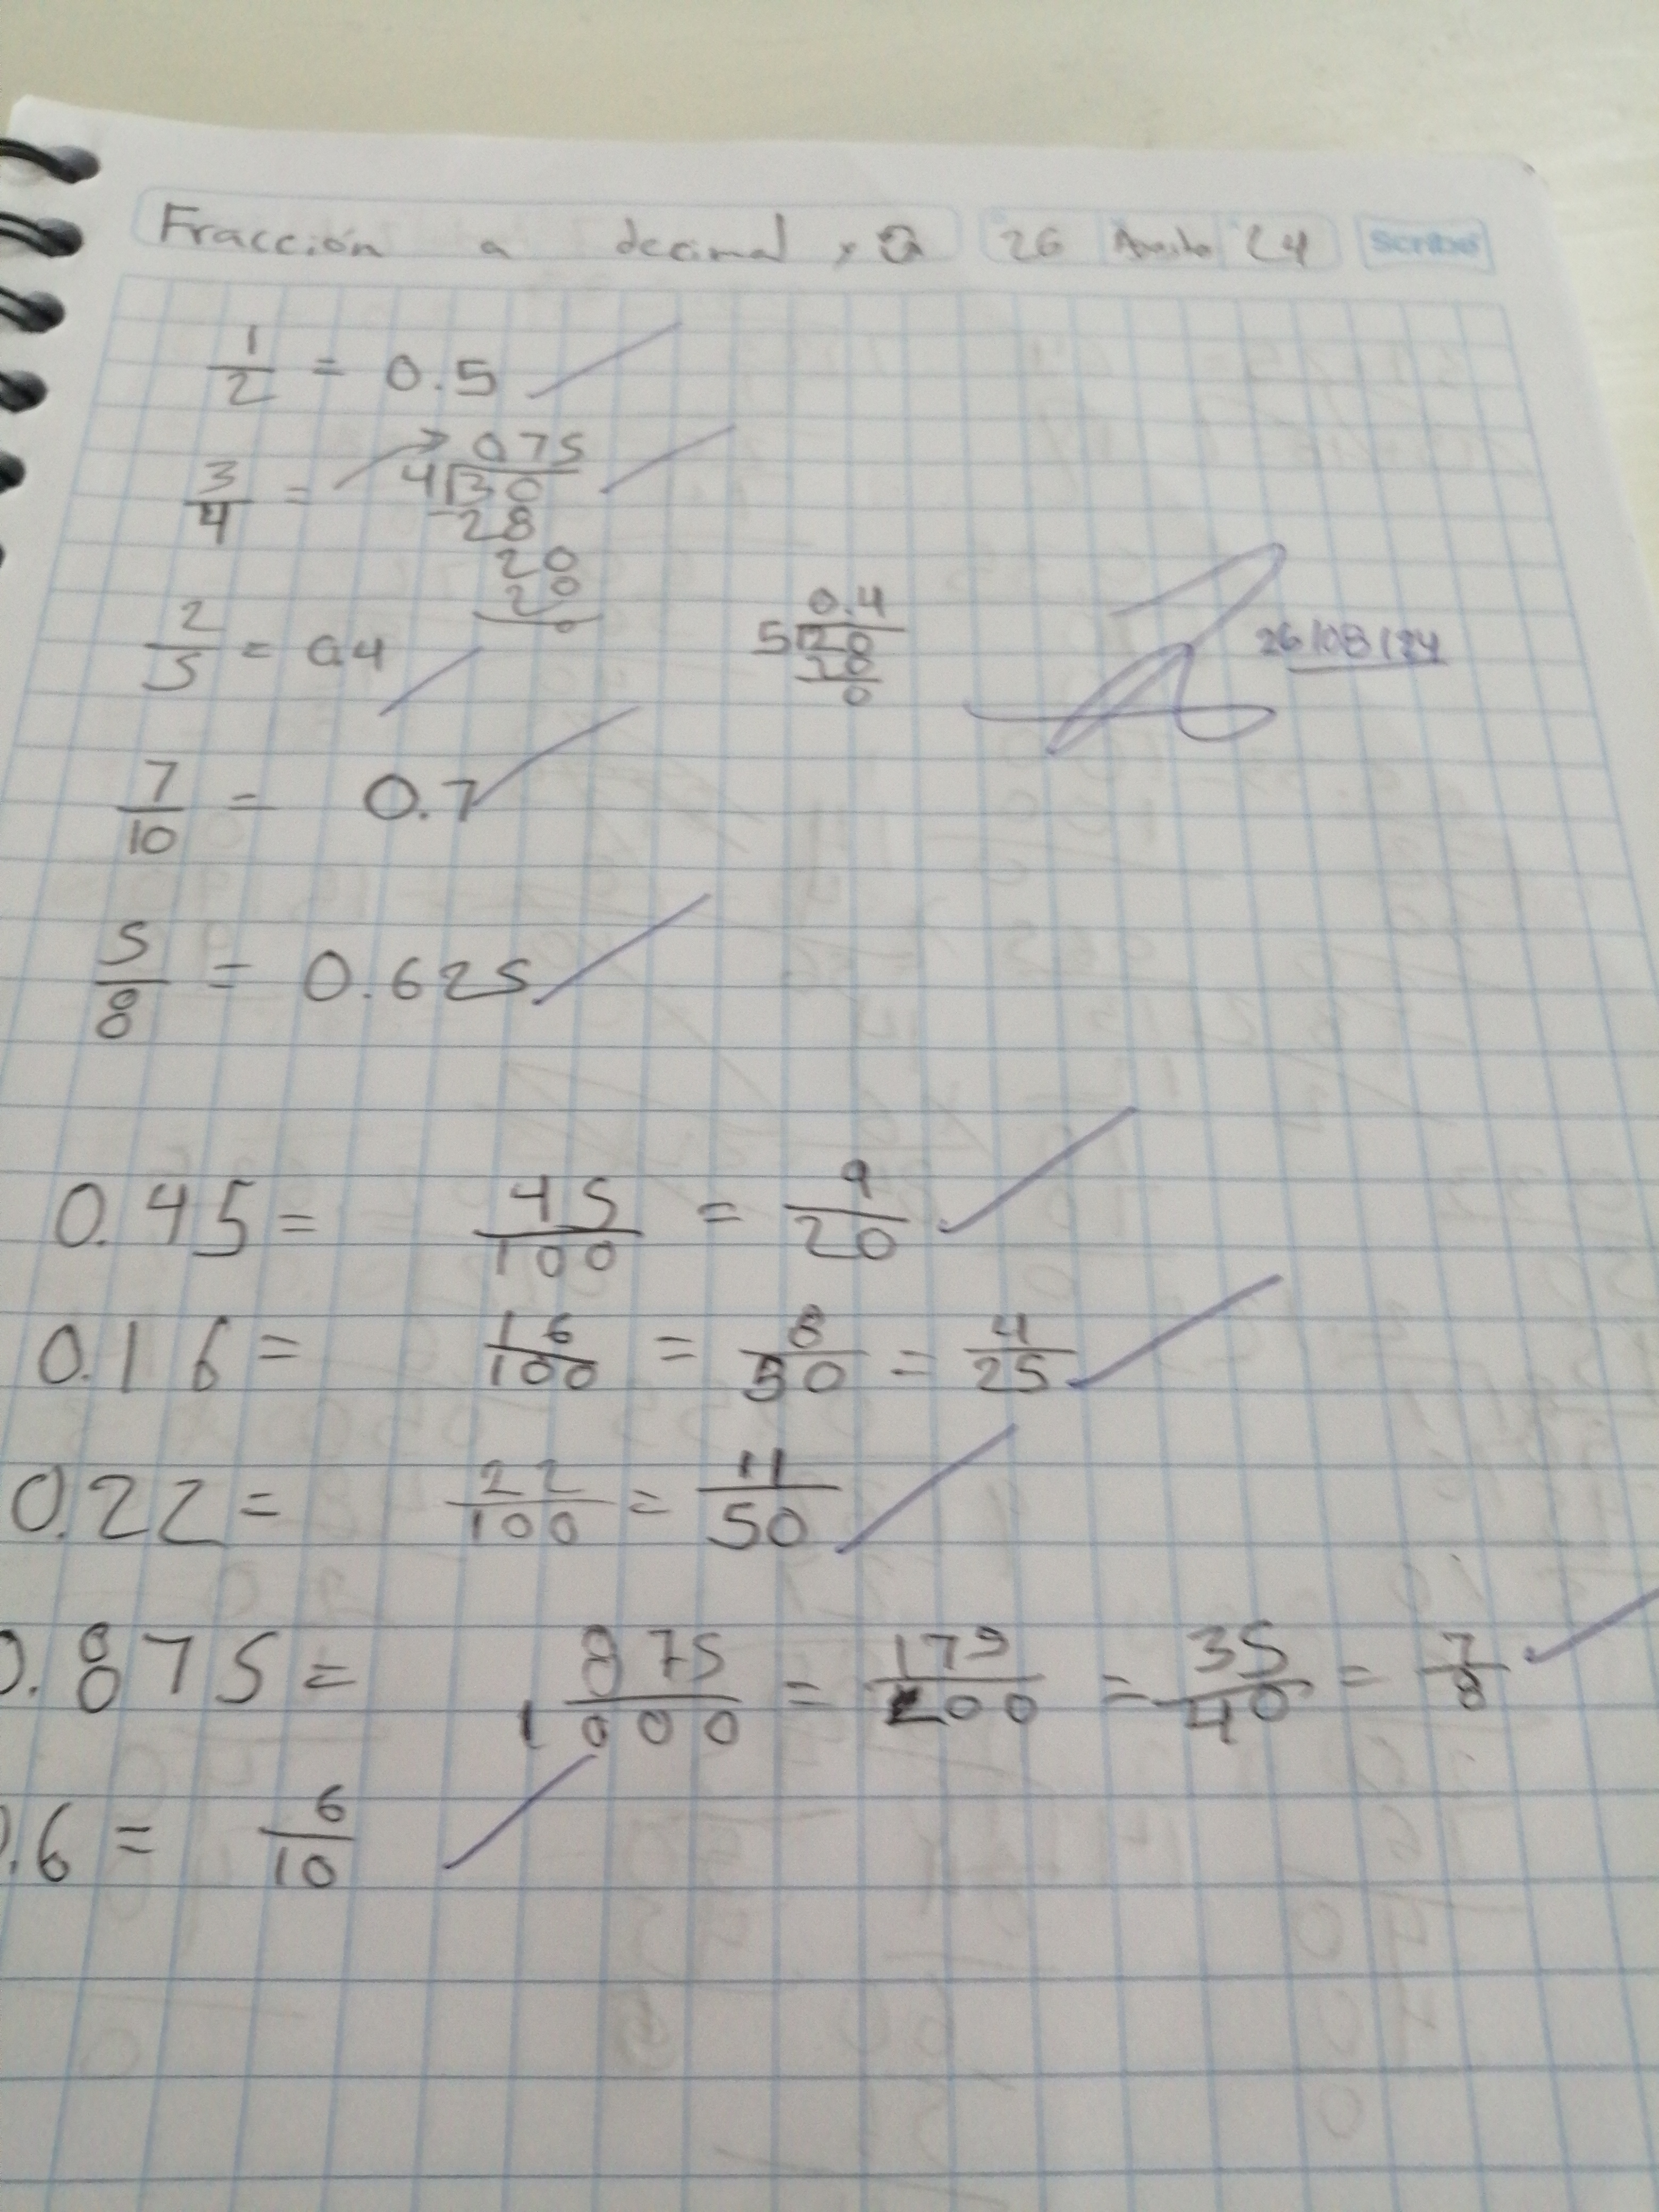 Fracción a decimal y 26 Agosto 24 Scribe
1/2 = 0.5
3/4 = 075
4 30
-28
20
20
0
2/5 = 0.4
0.4
5 20
20
0
26/08/24
7/10 = 0.7
5/8 = 0.625
0.45 = 45/100 = 9/20
0.16 = 16/100 = 8/50 = 4/25
0.22 = 22/100 = 11/50
0.875 = 875/1000 = 175/200 = 35/40 = 7/8
0.6 = 6/10